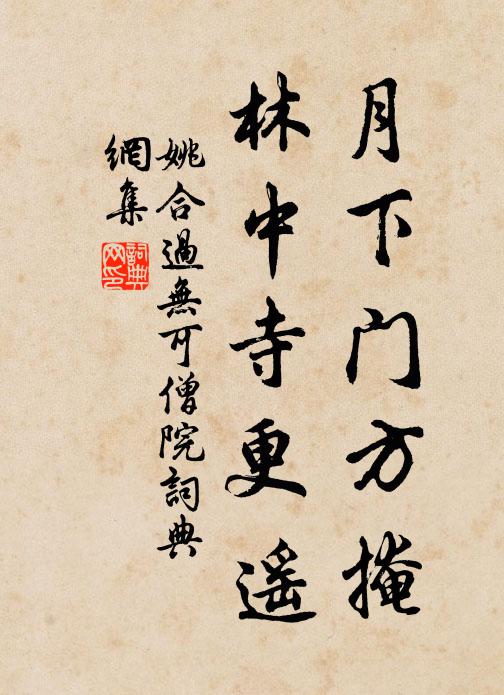 月下门方掩
林中寺更遥
姚合過無可僧院詞典
網集
詞典
网印